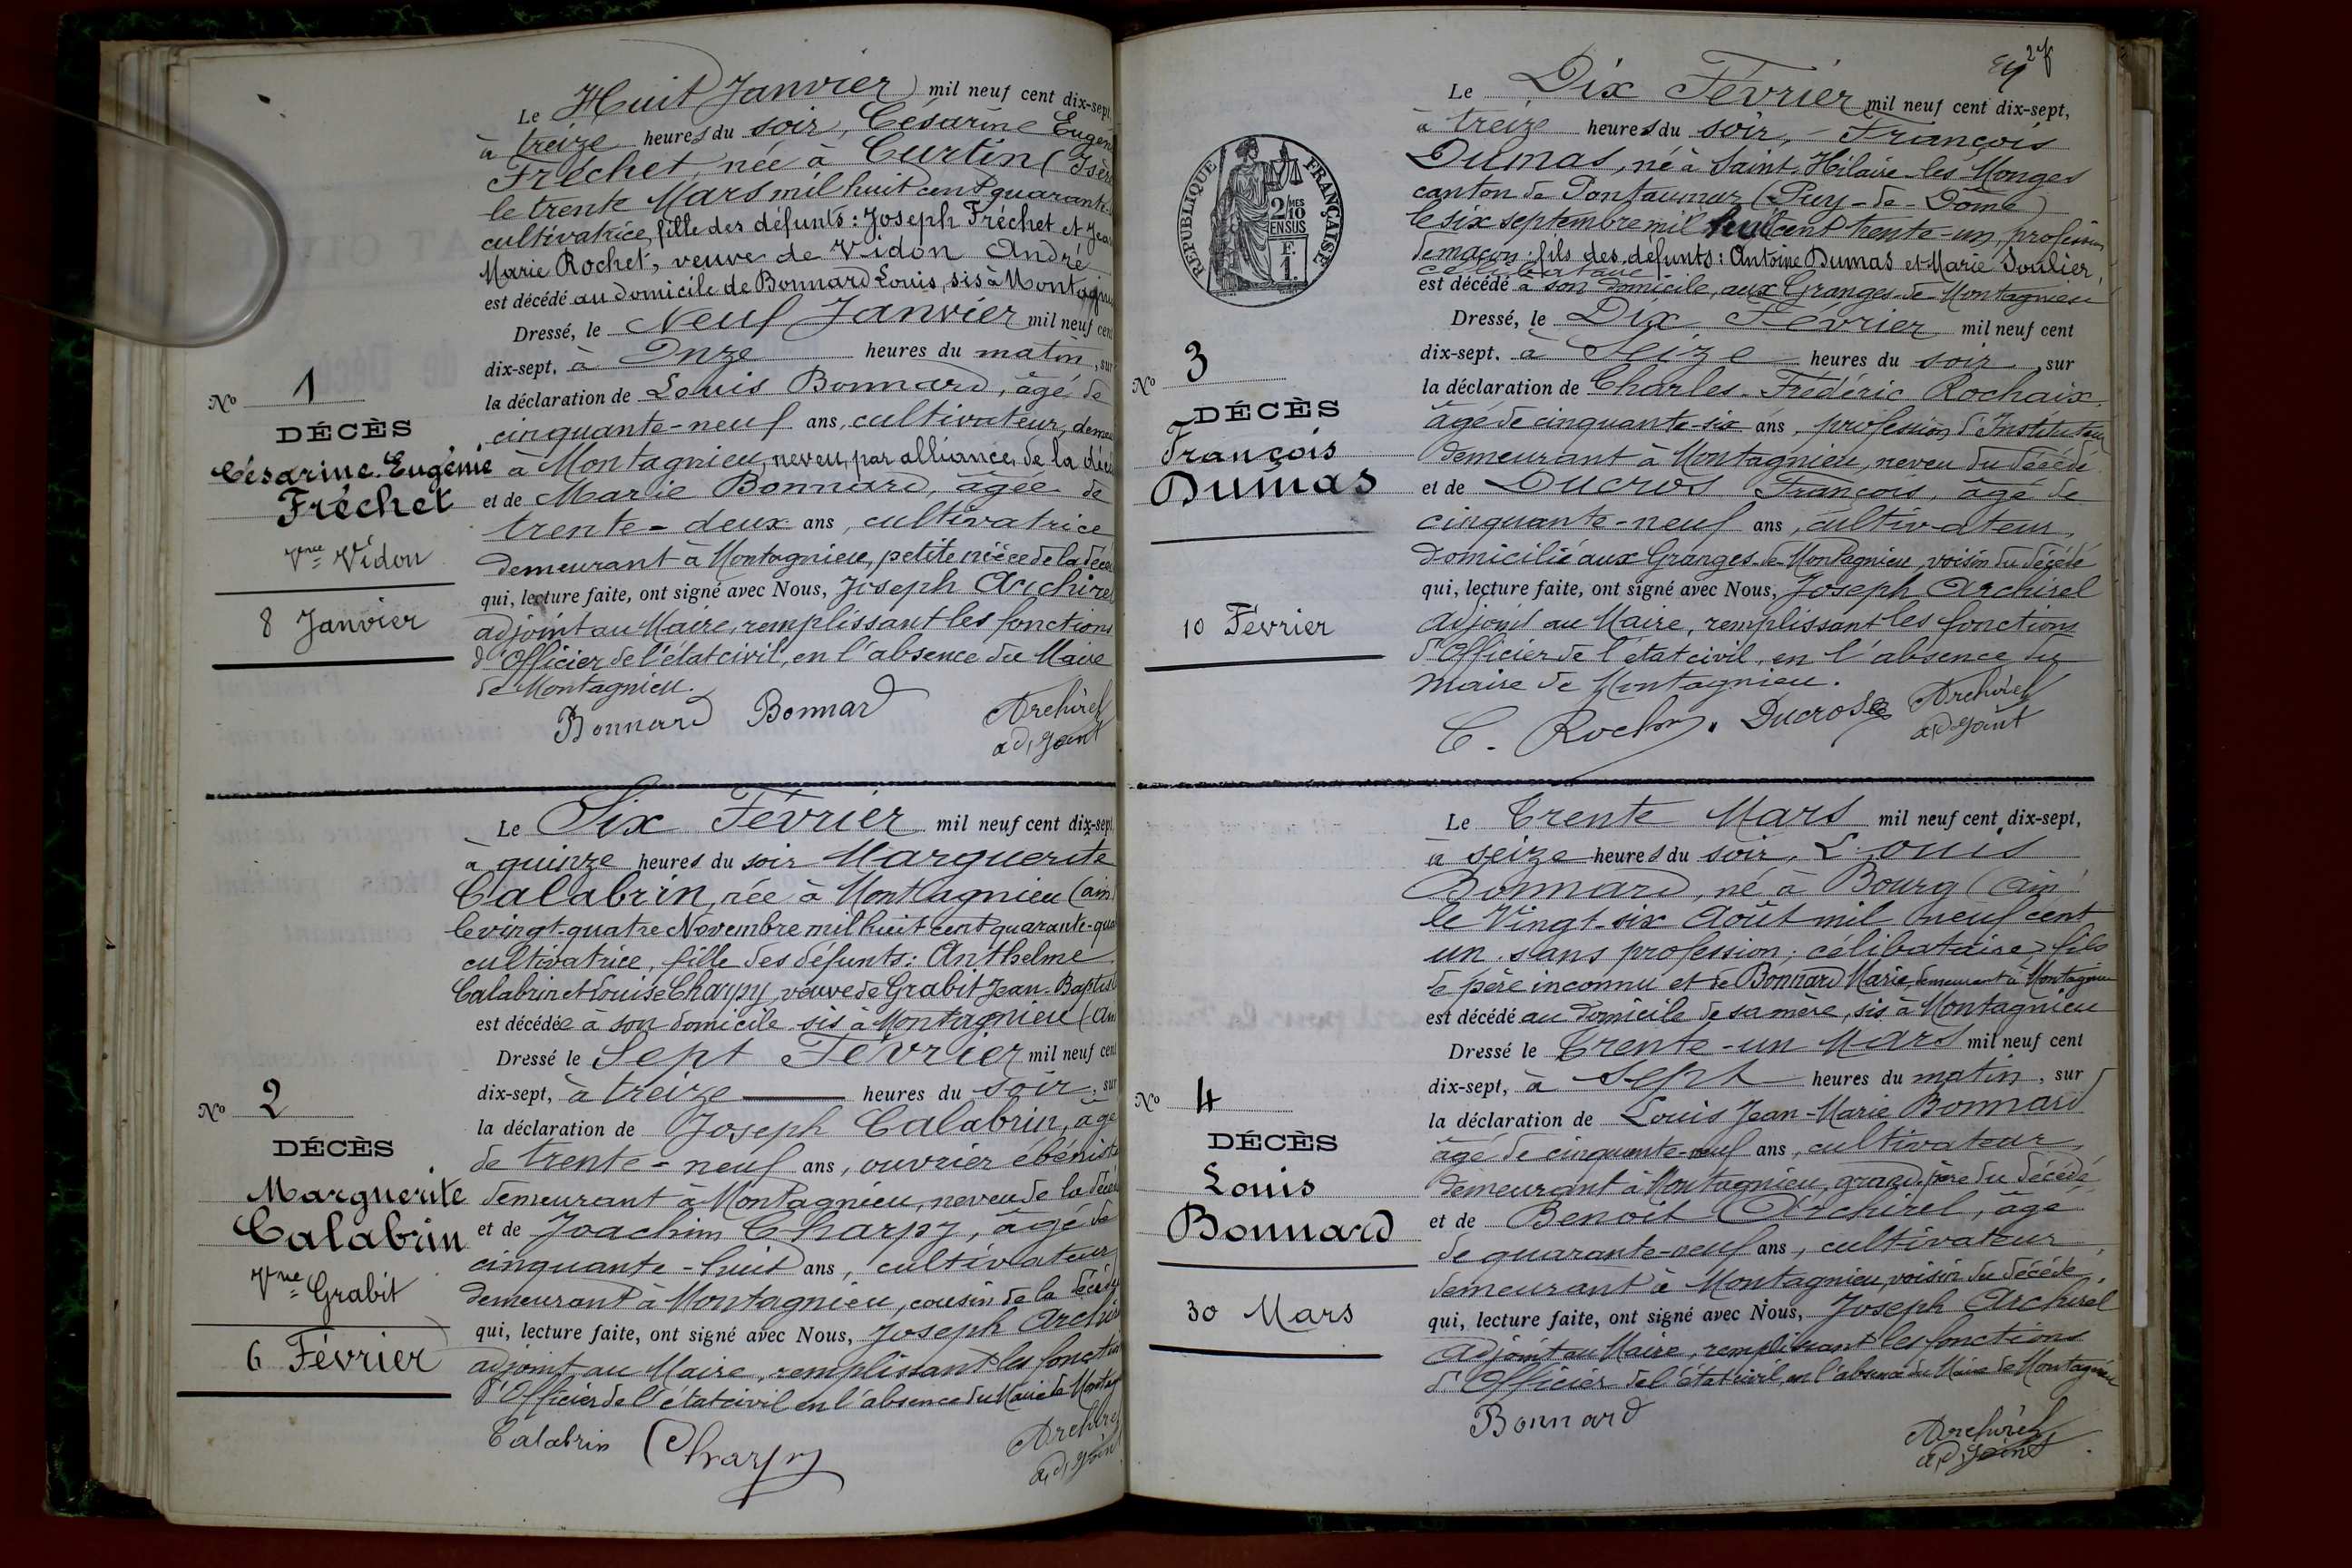 Le Huit Janvier mil neuf cent dix-sept
à treize heures du soir, Césarine Eugén
Fréchet, née à Curtin (Isère
le trente Mars mil huit cent quarante-
cultivatrice, fille des défunts : Joseph Fréchet et Jea
Marie Rochet, veuve de Vidon André
est décédé au domicile de Bonnard Louis, sis à Montagnieu
Dressé, le Neuf Janvier mil neuf cent
dix-sept, à Onze heures du matin, sur
la déclaration de Louis Bonnard, âgé de
cinquante-neuf ans, cultivateur, demeu
à Montagnieu, neveu, par alliance, de la décé
et de Marie Bonnard, âgée de
trente-deux ans, cultivatrice
demeurant à Montagnieu, petite nièce de la décé
qui, lecture faite, ont signé avec Nous, Joseph Archirel
adjoint au Maire, remplissant les fonctions
d'Officier de l'état civil, en l'absence du Maire
de Montagnieu.
Bonnard Bonnard Archirel
adjoint
No 1
DÉCÈS
Césarine Eugénie
Fréchet
Vve Vidon
8 Janvier
Le Six Février mil neuf cent dix-sept,
à quinze heures du soir Marguerite
Calabrin, née à Montagnieu (ain)
le vingt-quatre Novembre mil huit cent quarante-qua
cultivatrice, fille des défunts : Anthelme
Calabrin et Louise Charpy, veuve de Grabit Jean-Baptist
est décédée à son domicile sis à Montagnieu (Ain
Dressé le Sept Février mil neuf cent
dix-sept, à treize heures du soir, sur
la déclaration de Joseph Calabrin, âgé
de trente-neuf ans, ouvrier ébéniste
demeurant à Montagnieu, neveu de la décé
et de Joachim Charpy, âgé de
cinquante-huit ans, cultivateur
demeurant à Montagnieu, cousin de la décédé
qui, lecture faite, ont signé avec Nous, Joseph Archir
adjoint au Maire, remplissant les fonction
d'Officier de l'état civil en l'absence du Maire de Montag
Calabrin Charpy Archirel
adjoint
No 2
DÉCÈS
Marguerite
Calabrin
Vve Grabit
6 Février
2
Le Dix Février mil neuf cent dix-sept,
à treize heures du soir, François
Dumas, né à Saint-Hilaire-les-Monges
canton de Pontaumur (Puy-de-Dôme)
le six septembre mil huit cent trente-un, profession
de maçon ; fils des défunts : Antoine Dumas et Marie Soulier,
célibataire
est décédé à son domicile, aux Granges-de-Montagnieu
Dressé, le Dix Février mil neuf cent
dix-sept, à Seize heures du soir, sur
la déclaration de Charles-Frédéric Rochaix,
âgé de cinquante-six ans, profession d'Instituteur
demeurant à Montagnieu, neveu du décédé
et de Ducros François, âgé de
cinquante-neuf ans, cultivateur,
domicilié aux Granges-de-Montagnieu, voisin du décédé
qui, lecture faite, ont signé avec Nous, Joseph Archirel
adjoint au Maire, remplissant les fonctions
d'Officier de l'état civil, en l'absence du
maire de Montagnieu.
C. Ducros Archirel
adjoint
RÉPUBLIQUE FRANÇAISE
2 MES
10
EN SUS
F.
1.
No 3
DÉCÈS
François
Dumas
10 Février
Le Trente Mars mil neuf cent dix-sept,
à seize heures du soir, Louis
Bonnard, né à Bourg (ain)
le Vingt-six Août mil neuf cent
un sans profession ; célibataire, fils
de père inconnu et de Bonnard Marie, demeurant à Montagnieu
est décédé au domicile de sa mère, sis à Montagnieu
Dressé le Trente-un Mars mil neuf cent
dix-sept, à Sept heures du matin, sur
la déclaration de Louis Jean-Marie Bonnard
âgé de cinquante-neuf ans, cultivateur,
demeurant à Montagnieu, grand père du décédé
et de Benoît Archirel, âgé
de quarante-neuf ans, cultivateur,
demeurant à Montagnieu, voisin du décédé,
qui, lecture faite, ont signé avec Nous, Joseph Archirel
adjoint au Maire, remplissant les fonctions
d'Officier de l'état civil, en l'absence du Maire de Montagnieu
Bonnard Archirel
adjoint
No 4
DÉCÈS
Louis
Bonnard
30 Mars